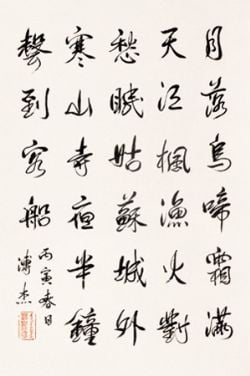 月落烏啼霜滿
天江楓漁火對
愁眠姑蘇城外
寒山寺夜半鐘
聲到客船
丙寅春日
溥杰